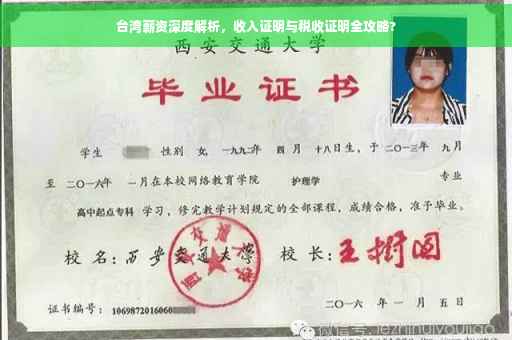 台湾薪资深度解析，收入证明与税收证明全攻略?
西安交通大学
毕业证书
学生 性别 女,一九九二年 四月 十八日生，于 二〇一三年 九月
至 二〇一六年 一月在本校网络教育学院 护理学 专业
高中起点专科 学习，修完教学计划规定的全部课程，成绩合格，准予毕业。
校名: 西安交通大学 校长: 王树国
西安交通大学
证书编号: 1069872016060
二〇一六年 一月 五日
微信号: jezhihuiyoujiao